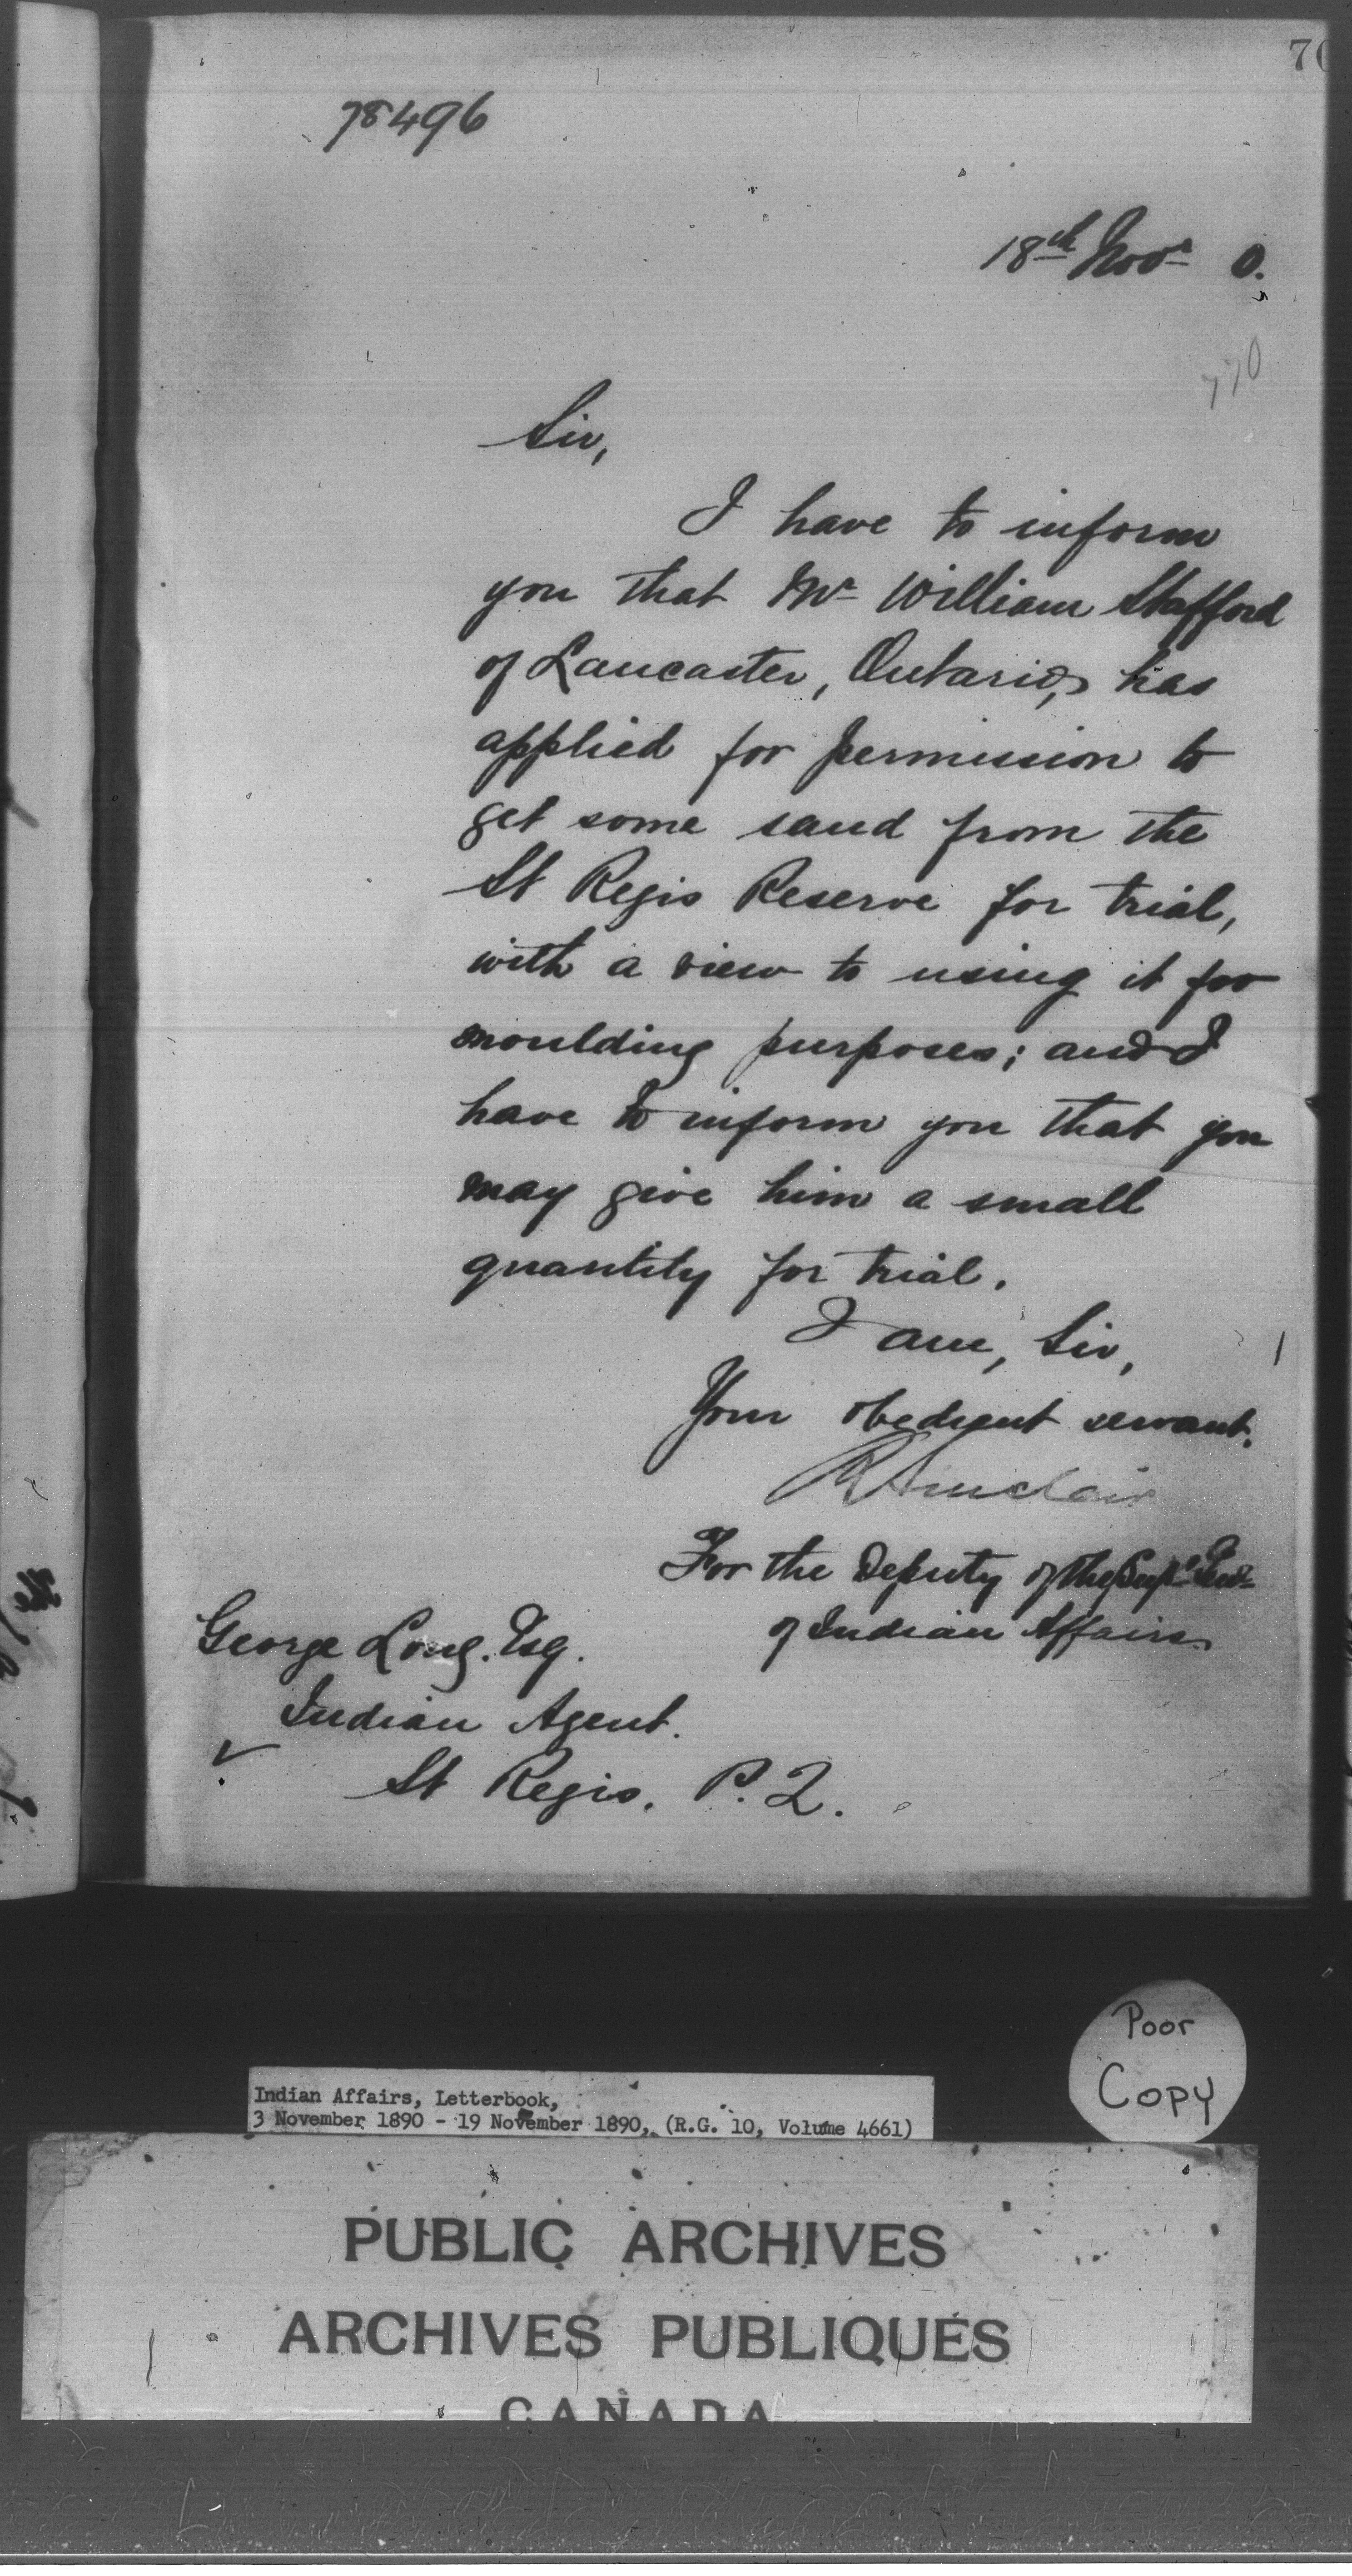 78496
18th Novr 0.
770
Sir,
I have to inform
you that Mr William Stafford
of Lancaster, Ontario, has
applied for permission to
get some sand from the
St Regis Reserve for trial,
with a view to using it for
moulding purposes; and I
have to inform you that you
may give him a small
quantity for trial.
I am, Sir,
Your obedient servant.
R Sinclair
For the Deputy of the Supt Genl
of Indian Affairs
George Long. Esq.
Indian Agent.
St Regis. P.Q.
Poor
Copy
Indian Affairs, Letterbook,
3 November 1890 - 19 November 1890, (R.G. 10, Volume 4661)
PUBLIC ARCHIVES
ARCHIVES PUBLIQUES
CANADA